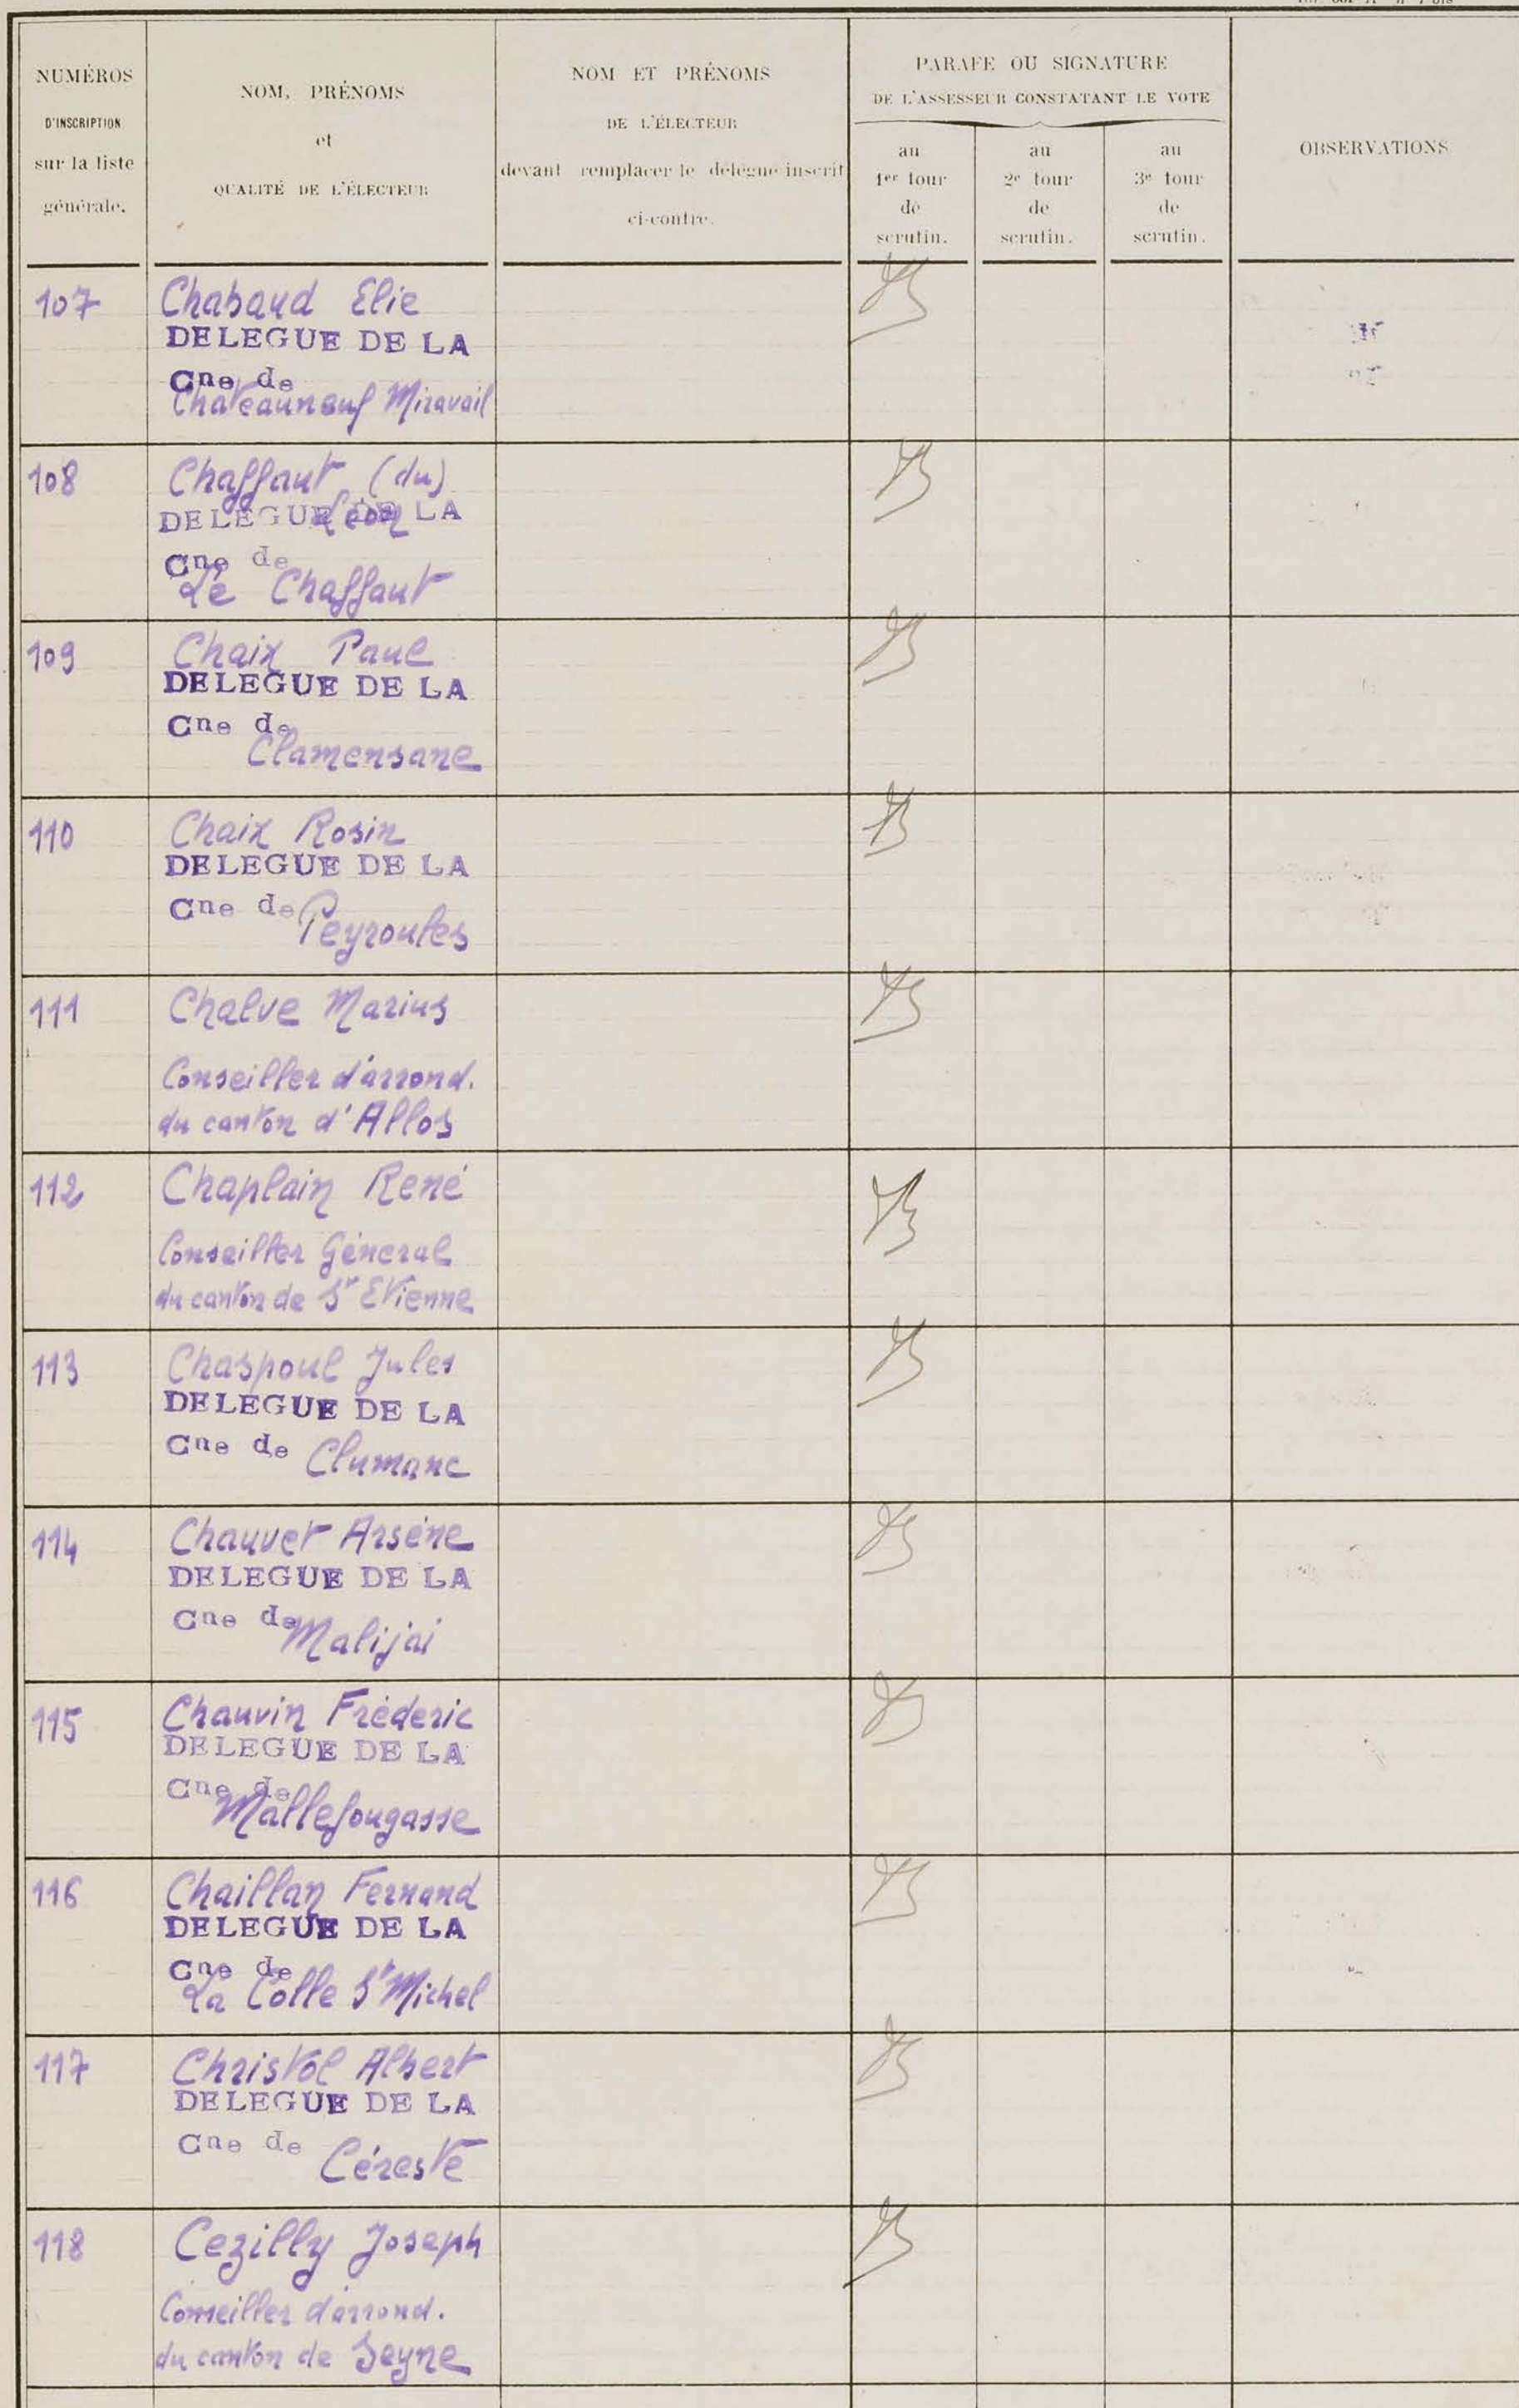 NUMÉROS
D'INSCRIPTION
sur la liste
générale.
NOM, PRÉNOMS
et
QUALITÉ DE L'ÉLECTEUR
NOM ET PRÉNOMS
DE L'ÉLECTEUR
devant remplacer le délégué inscrit
ci-contre.
PARAFE OU SIGNATURE
DE L'ASSESSEUR CONSTATANT LE VOTE
au
1er tour
de
scrutin.
au
2e tour
de
scrutin.
au
3e tour
de
scrutin.
OBSERVATIONS
107 Chabaud Elie
DELEGUE DE LA
Cne de
Chateauneuf Miravail
108 Chaffaut (du)
Léon
DELEGUE DE LA
Cne de
Le Chaffaut
109 Chaix Paul
DELEGUE DE LA
Cne de
Clamensane
110 Chaix Rosin
DELEGUE DE LA
Cne de Peyroules
111 Chalve Marius
Conseiller d'arrond.
du canton d'Allos
112 Chaplain René
Conseiller Géneral
du canton de St Etienne
113 Chaspoul Jules
DELEGUE DE LA
Cne de Clumanc
114 Chauvet Arsène
DELEGUE DE LA
Cne de Malijai
115 Chauvin Fréderic
DELEGUE DE LA
Cne de
Mallefougasse
116 Chaillan Fernand
DELEGUE DE LA
Cne de
La Colle St Michel
117 Christol Albert
DELEGUE DE LA
Cne de Céreste
118 Cezilly Joseph
Conseiller d'arrond.
du canton de Seyne